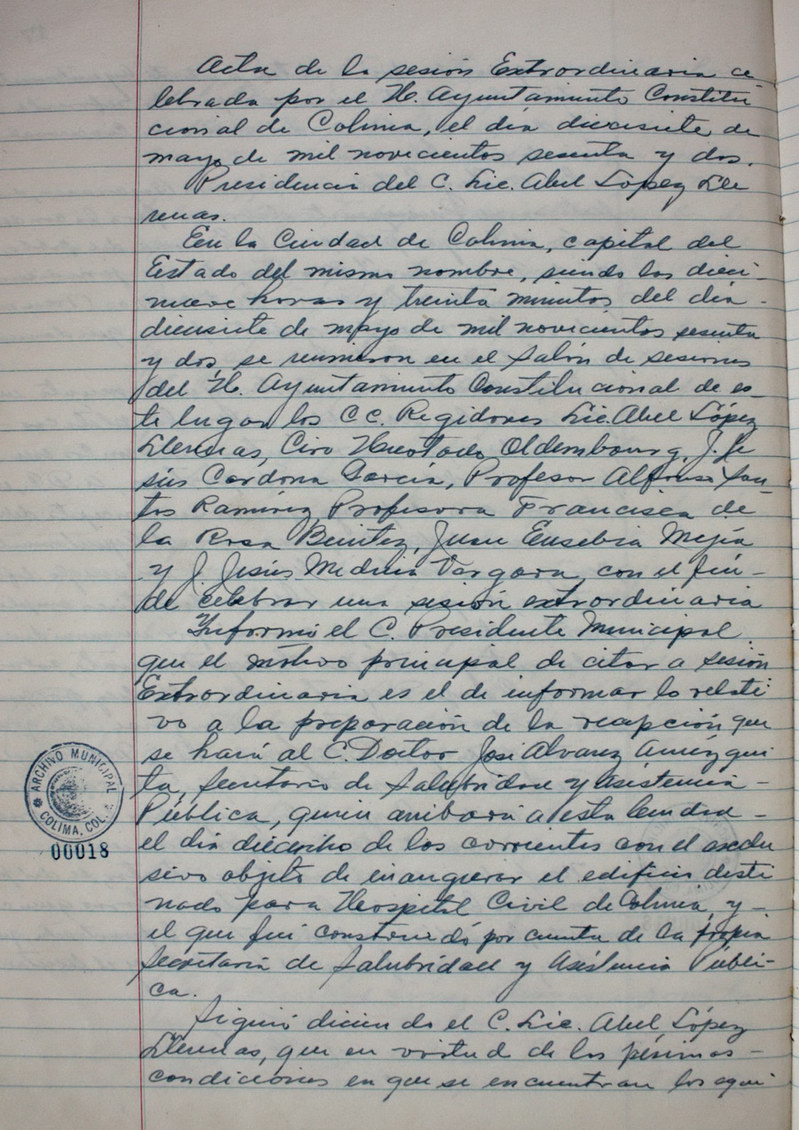 Acta de la sesión Extraordinaria ce
lebrada por el H. Ayuntamiento Constitu
cional de Colima, el día diecisiete de
mayo de mil novecientos sesenta y dos.
Presidencia del C. Lic. Abel López Lle
renas.
En la Ciudad de Colima, capital del
Estado del mismo nombre, siendo las dieci-
nueve horas y treinta minutos del día -
diecisiete de mayo de mil novecientos sesenta
y dos, se reunieron en el Salón de sesiones
del H. Ayuntamiento Constitucional de es-
te lugar los CC. Regidores Lic. Abel López
Llerenas, Ciro Hurtado Oldembourg, J. Je
sús Cardona García, Profesor Alfonso San-
tos Ramírez Profesora Francisca de
la Rosa Benítez, Juan Eusebia Mejía
y J. Jesús Medina Vargara, con el fin -
de celebrar una sesión extraordinaria
Informó el C. Presidente Municipal
que el motivo principal de citar a sesión
Extraordinaria es el de informar lo relati
vo a la preparación de la recepción que
se hará al C. Doctor José Alvarez Amézqui
ta, Secretario de Salubridad y Asistencia
Pública, quien arribará a esta Ciudad -
el día dieciocho de los corrientes con el exclu
sivo objeto de inaugurar el edificio desti
nado para Hospital Civil de Colima, y -
el que fué construido por cuenta de la propia
Secretaría de Salubridad y Asistencia Públi-
ca.
Siguió diciendo el C. Lic. Abel López
Llerenas, que en virtud de las pésimas -
condiciones en que se encuentran los aqui
ARCHIVO MUNICIPAL
COLIMA, COL.
00018